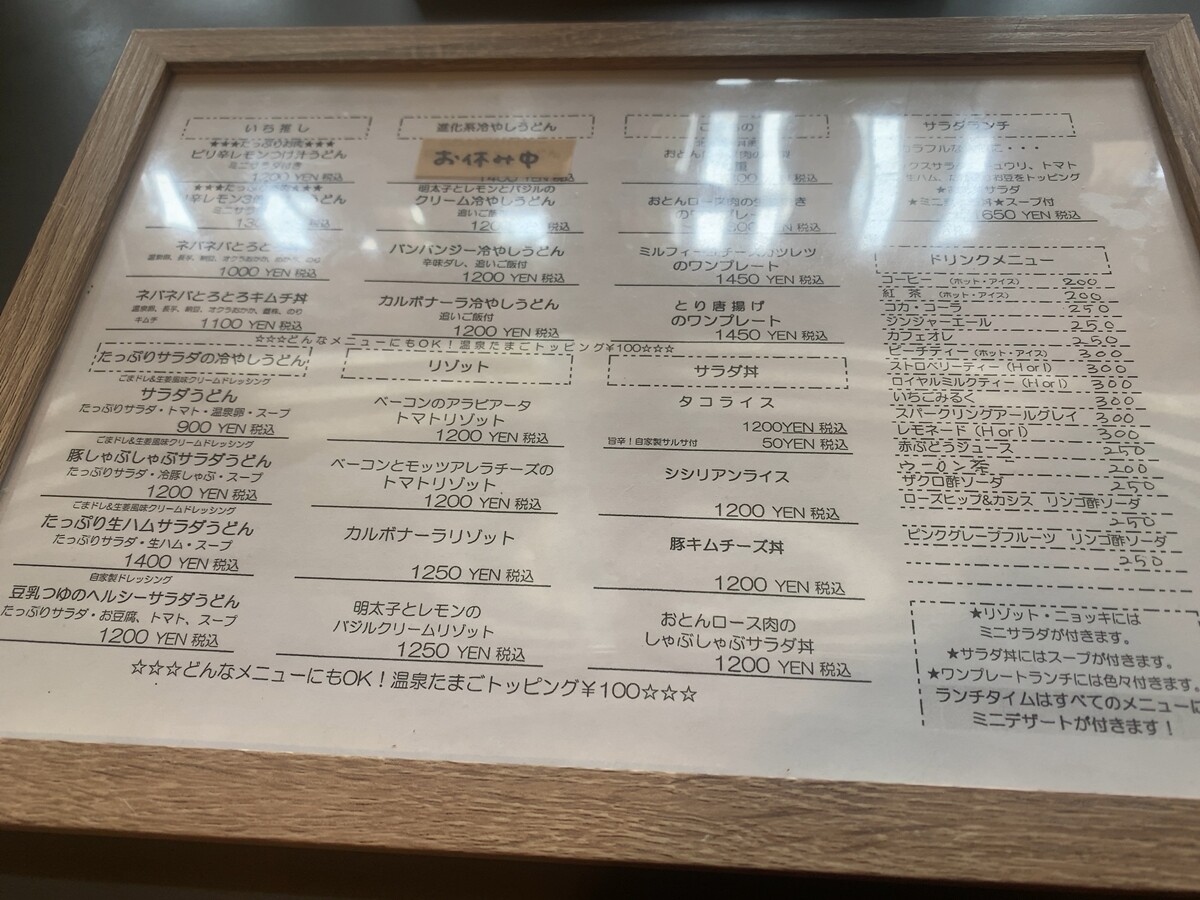 いち推し
★★★たっぷりお肉★★★
ピリ辛レモンつけ汁うどん
1200 YEN 税込
★★★たっぷ
辛レモン
ミニサラ
ネバネバとろと
1000 YEN 税込
ネバネバとろとろキムチ丼
キムチ
1100 YEN 税込
進化系冷やしうどん
お休み中
明太子とレモンとバジルの
クリーム冷やしうどん
追いご飯
バンバンジー冷やしうどん
辛味ダレ、追いご飯付
1200 YEN 税込
カルボナーラ冷やしうどん
追いご飯付
1200 YEN 税込
おとん
おとんロース肉の
のワンプレー
ミルフィー
チーズカツレツ
のワンプレート
1450 YEN 税込
とり唐揚げ
のワンプレート
1450 YEN 税込
☆☆☆どんなメニューにもOK！温泉たまごトッピング¥100☆☆☆
たっぷりサラダの冷やしうどん
ごまドレ&生姜風味クリームドレッシング
サラダうどん
たっぷりサラダ・トマト・温泉卵・スープ
900 YEN 税込
ごまドレ&生姜風味クリームドレッシング
豚しゃぶしゃぶサラダうどん
たっぷりサラダ・冷豚しゃぶ・スープ
1200 YEN 税込
ごまドレ&生姜風味クリームドレッシング
たっぷり生ハムサラダうどん
たっぷりサラダ・生ハム・スープ
1400 YEN 税込
自家製ドレッシング
豆乳つゆのヘルシーサラダうどん
たっぷりサラダ・お豆腐、トマト、スープ
1200 YEN 税込
リゾット
ベーコンのアラビアータ
トマトリゾット
1200 YEN 税込
ベーコンとモッツアレラチーズの
トマトリゾット
1200 YEN 税込
カルボナーラリゾット
1250 YEN 税込
明太子とレモンの
バジルクリームリゾット
1250 YEN 税込
サラダ丼
タコライス
1200YEN 税込
旨辛！自家製サルサ付 50YEN 税込
シシリアンライス
1200 YEN 税込
豚キムチーズ丼
1200 YEN 税込
おとんロース肉の
しゃぶしゃぶサラダ丼
1200 YEN 税込
☆☆☆どんなメニューにもOK！温泉たまごトッピング¥100☆☆☆
サラダランチ
カラフルな
トマト
お豆をトッピング
サラダ
★スープ付
1650 YEN 税込
ドリンクメニュー
コーヒー (ホット・アイス) 200
紅 茶 (ホット・アイス) 200
コカ・コーラ 250
ジンジャーエール 250
カフェオレ 250
ピーチティー (ホット・アイス) 300
ストロベリーティー (H or I) 300
ロイヤルミルクティ (H or I) 300
いちごみるく 300
スパークリングアールグレイ 300
レモネード (H or I) 300
赤ぶどうジュース 250
ウーロン茶 200
ザクロ酢ソーダ 250
ローズヒップ&カシス リンゴ酢ソーダ
250
ピンクグレープフルーツ リンゴ酢ソーダ
250
★リゾット・ニョッキには
ミニサラダが付きます。
★サラダ丼にはスープが付きます。
★ワンプレートランチには色々付きます。
ランチタイムはすべてのメニューに
ミニデザートが付きます！